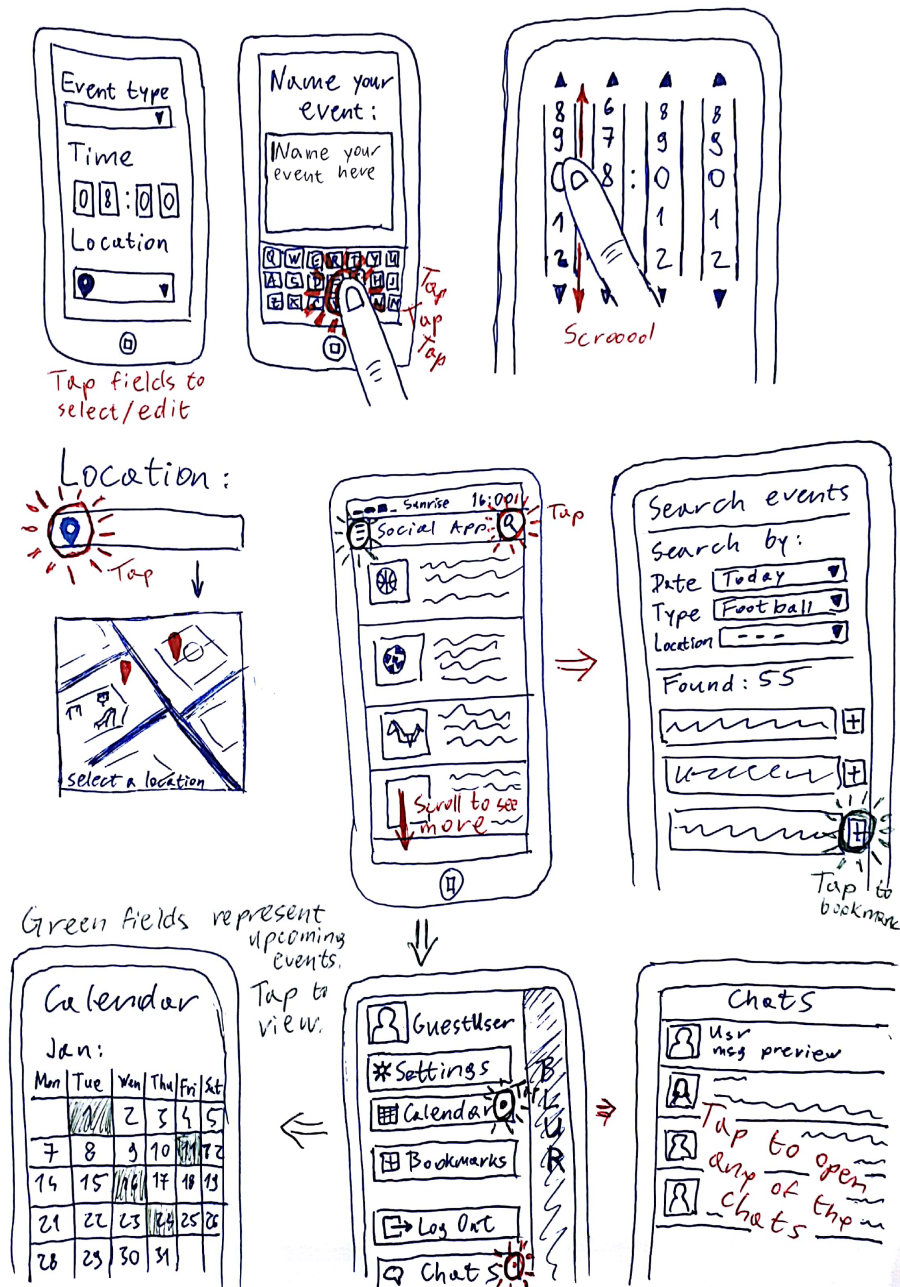 Event type
Time
08:00
Location
Tap fields to
select/edit
Name your
event:
Name your
event here
Q W E R T Y U
A S D H J
Z X C N M
Tap
Tap
Tap
8 6 8 8
9 7 9 9
0 8 : 0 0
1 1 1
2 2 2
Scroool
Location:
Tap
select a location
Sunrise 16:00
Social App
Tap
Scroll to see
more
Search events
Search by:
Date Today
Type Football
Location ---
Found: 55
Tap to
bookmark
Green fields represent
upcoming
events.
Tap to
view.
Calendar
Jan:
Mon Tue Wen Thu Fri Sat
1 2 3 4 5
7 8 9 10 11 12
14 15 16 17 18 19
21 22 23 24 25 26
28 29 30 31
GuestUser
Settings
Calendar
Tap
Bookmarks
Log Out
Chats
BLUR
Chats
Usr
msg preview
Tap to open
any of the
chats